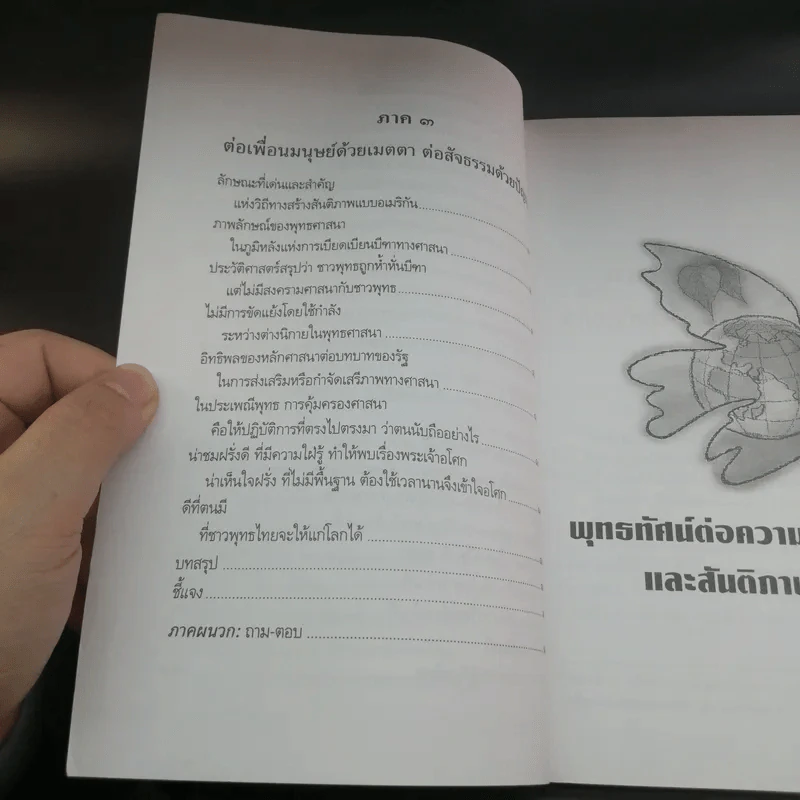 ภาค ๓
ต่อเพื่อนมนุษย์ด้วยเมตตา ต่อสัจธรรมด้วย
ลักษณะที่เด่นและสำคัญ
แห่งวิถีทางสร้างสันติภาพแบบอเมริกัน
ภาพลักษณ์ของพุทธศาสนา
ในภูมิหลังแห่งการเบียดเบียนบีฑาทางศาสนา
ประวัติศาสตร์สรุปว่า ชาวพุทธถูกห้ำหั่นบีฑา
แต่ไม่มีสงครามศาสนากับชาวพุทธ
ไม่มีการขัดแย้งโดยใช้กำลัง
ระหว่างต่างนิกายในพุทธศาสนา
อิทธิพลของหลักศาสนาต่อบทบาทของรัฐ
ในการส่งเสริมหรือกำจัดเสรีภาพทางศาสนา
ในประเพณีพุทธ การคุ้มครองศาสนา
คือให้ปฏิบัติการที่ตรงไปตรงมา ว่าตนนับถืออย่างไร
น่าชมฝรั่งดี ที่มีความใฝ่รู้ ทำให้พบเรื่องพระเจ้าอโศก
น่าเห็นใจฝรั่ง ที่ไม่มีพื้นฐาน ต้องใช้เวลานานจึงเข้าใจอโศก
ดีที่ตนมี
ที่ชาวพุทธไทยจะให้แก่โลกได้
บทสรุป
ชี้แจง
ภาคผนวก: ถาม-ตอบ
พุทธทัศน์ต่อความ
และสันติภา